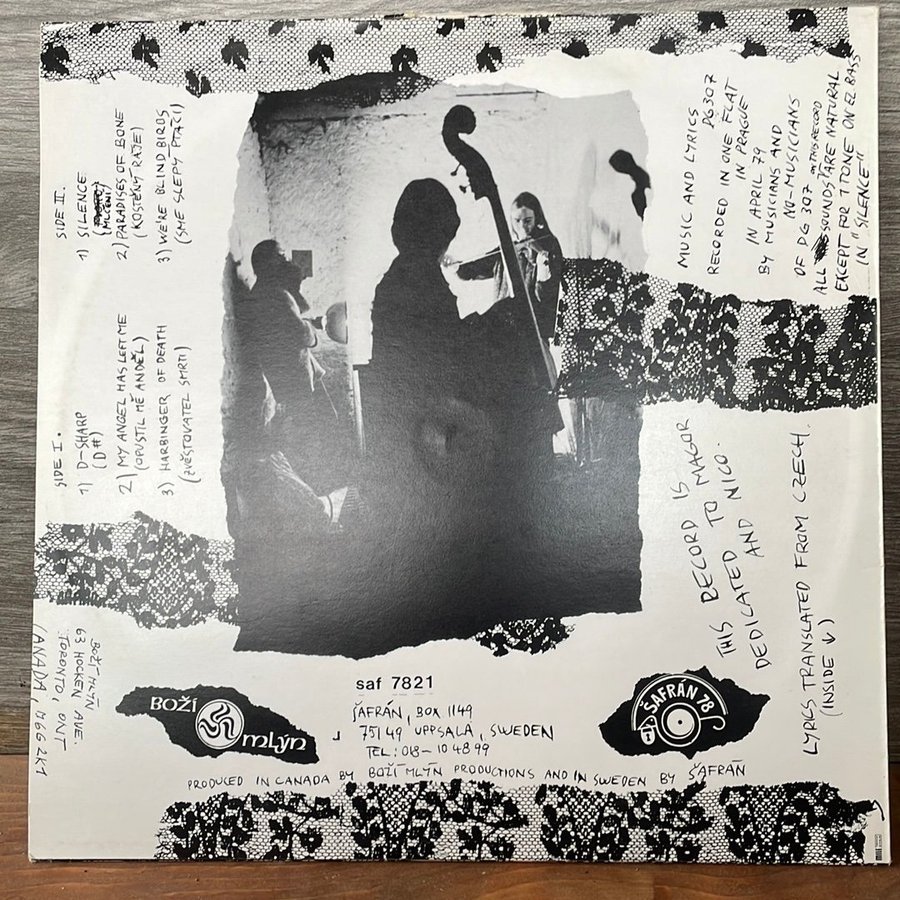 SIDE I.
1) D-SHARP
(D#)
2) MY ANGEL HAS LEFT ME
(OPUSTIL MĚ ANDĚL)
3) HARBINGER OF DEATH
(ZVĚSTOVATEL SMRTI)
SIDE II.
1) SILENCE
(MLČENÍ)
2) PARADISES OF BONE
(KOSTĚNÝ RÁJE)
3) WE'RE BLIND BIRDS
(SME SLEPÝ PTÁCI)
MUSIC AND LYRICS
DG 307
RECORDED IN ONE FLAT
IN PRAGUE
IN APRIL 79
BY MUSICIANS AND
NO-MUSICIANS
OF DG 307
ON THIS RECORD
ALL SOUNDS ARE NATURAL
EXCEPT FOR 1 TONE ON EL BASS
IN "SILENCE"
THIS RECORD IS
DEDICATED TO MAGOR
AND NICO.
LYRICS TRANSLATED FROM CZECH.
(INSIDE ↓)
BOŽÍ MLÝN
63 HOCKEN AVE.
TORONTO, ONT
CANADA, M6G 2K1
BOŽÍ
MLÝN
saf 7821
ŠAFRÁN, BOX 1149
751 49 UPPSALA, SWEDEN
TEL: 018-10 48 99
ŠAFRÁN 78
PRODUCED IN CANADA BY BOŽÍ MLÝN PRODUCTIONS AND IN SWEDEN BY ŠAFRÁN